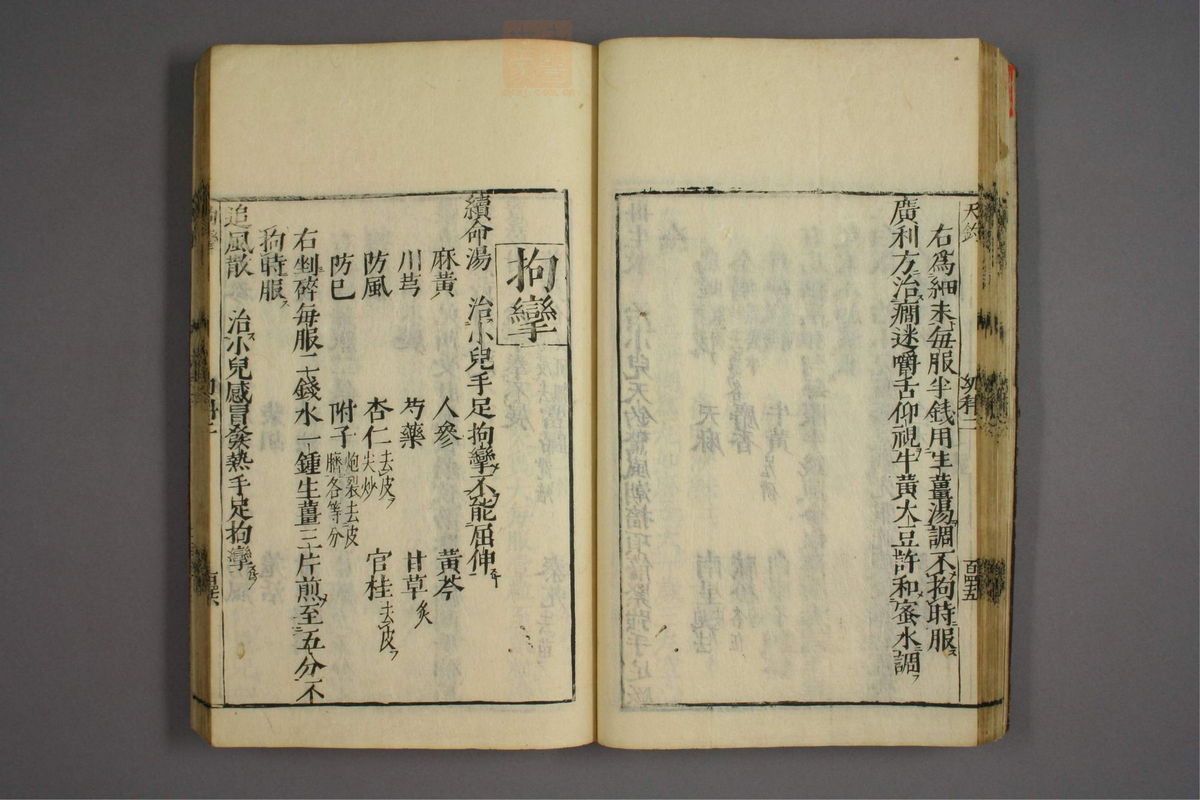 天鈎
幼科二
百四十五
右爲細末每服半錢用生薑湯調不拘時服
廣利方治癇迷嚼舌仰視牛黃大豆許和蜜水調
拘攣
續命湯 治小兒手足拘攣不能屈伸
麻黃 人參 黃芩
川芎 芍藥 甘草炙
防風 杏仁去皮尖炒 官桂去皮
防已 附子炮裂去皮臍各等分
右剉碎每服二錢水一鍾生薑三片煎至五分不
拘時服
追風散 治小兒感冒發熱手足拘攣